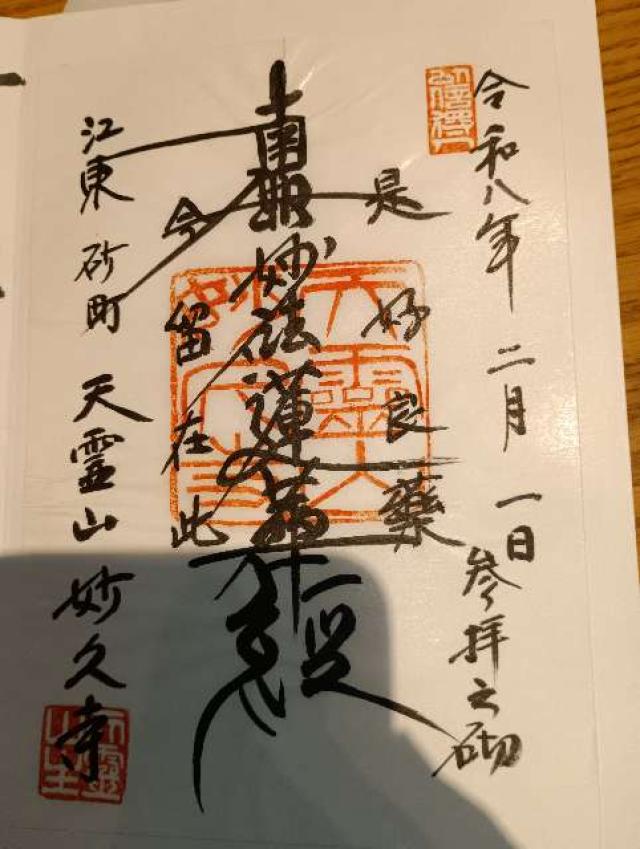 令和八年 二月 一日 参拝之砌
是好良藥
南無妙法蓮華経
今留在此
江東 砂町 天霊山 妙久寺